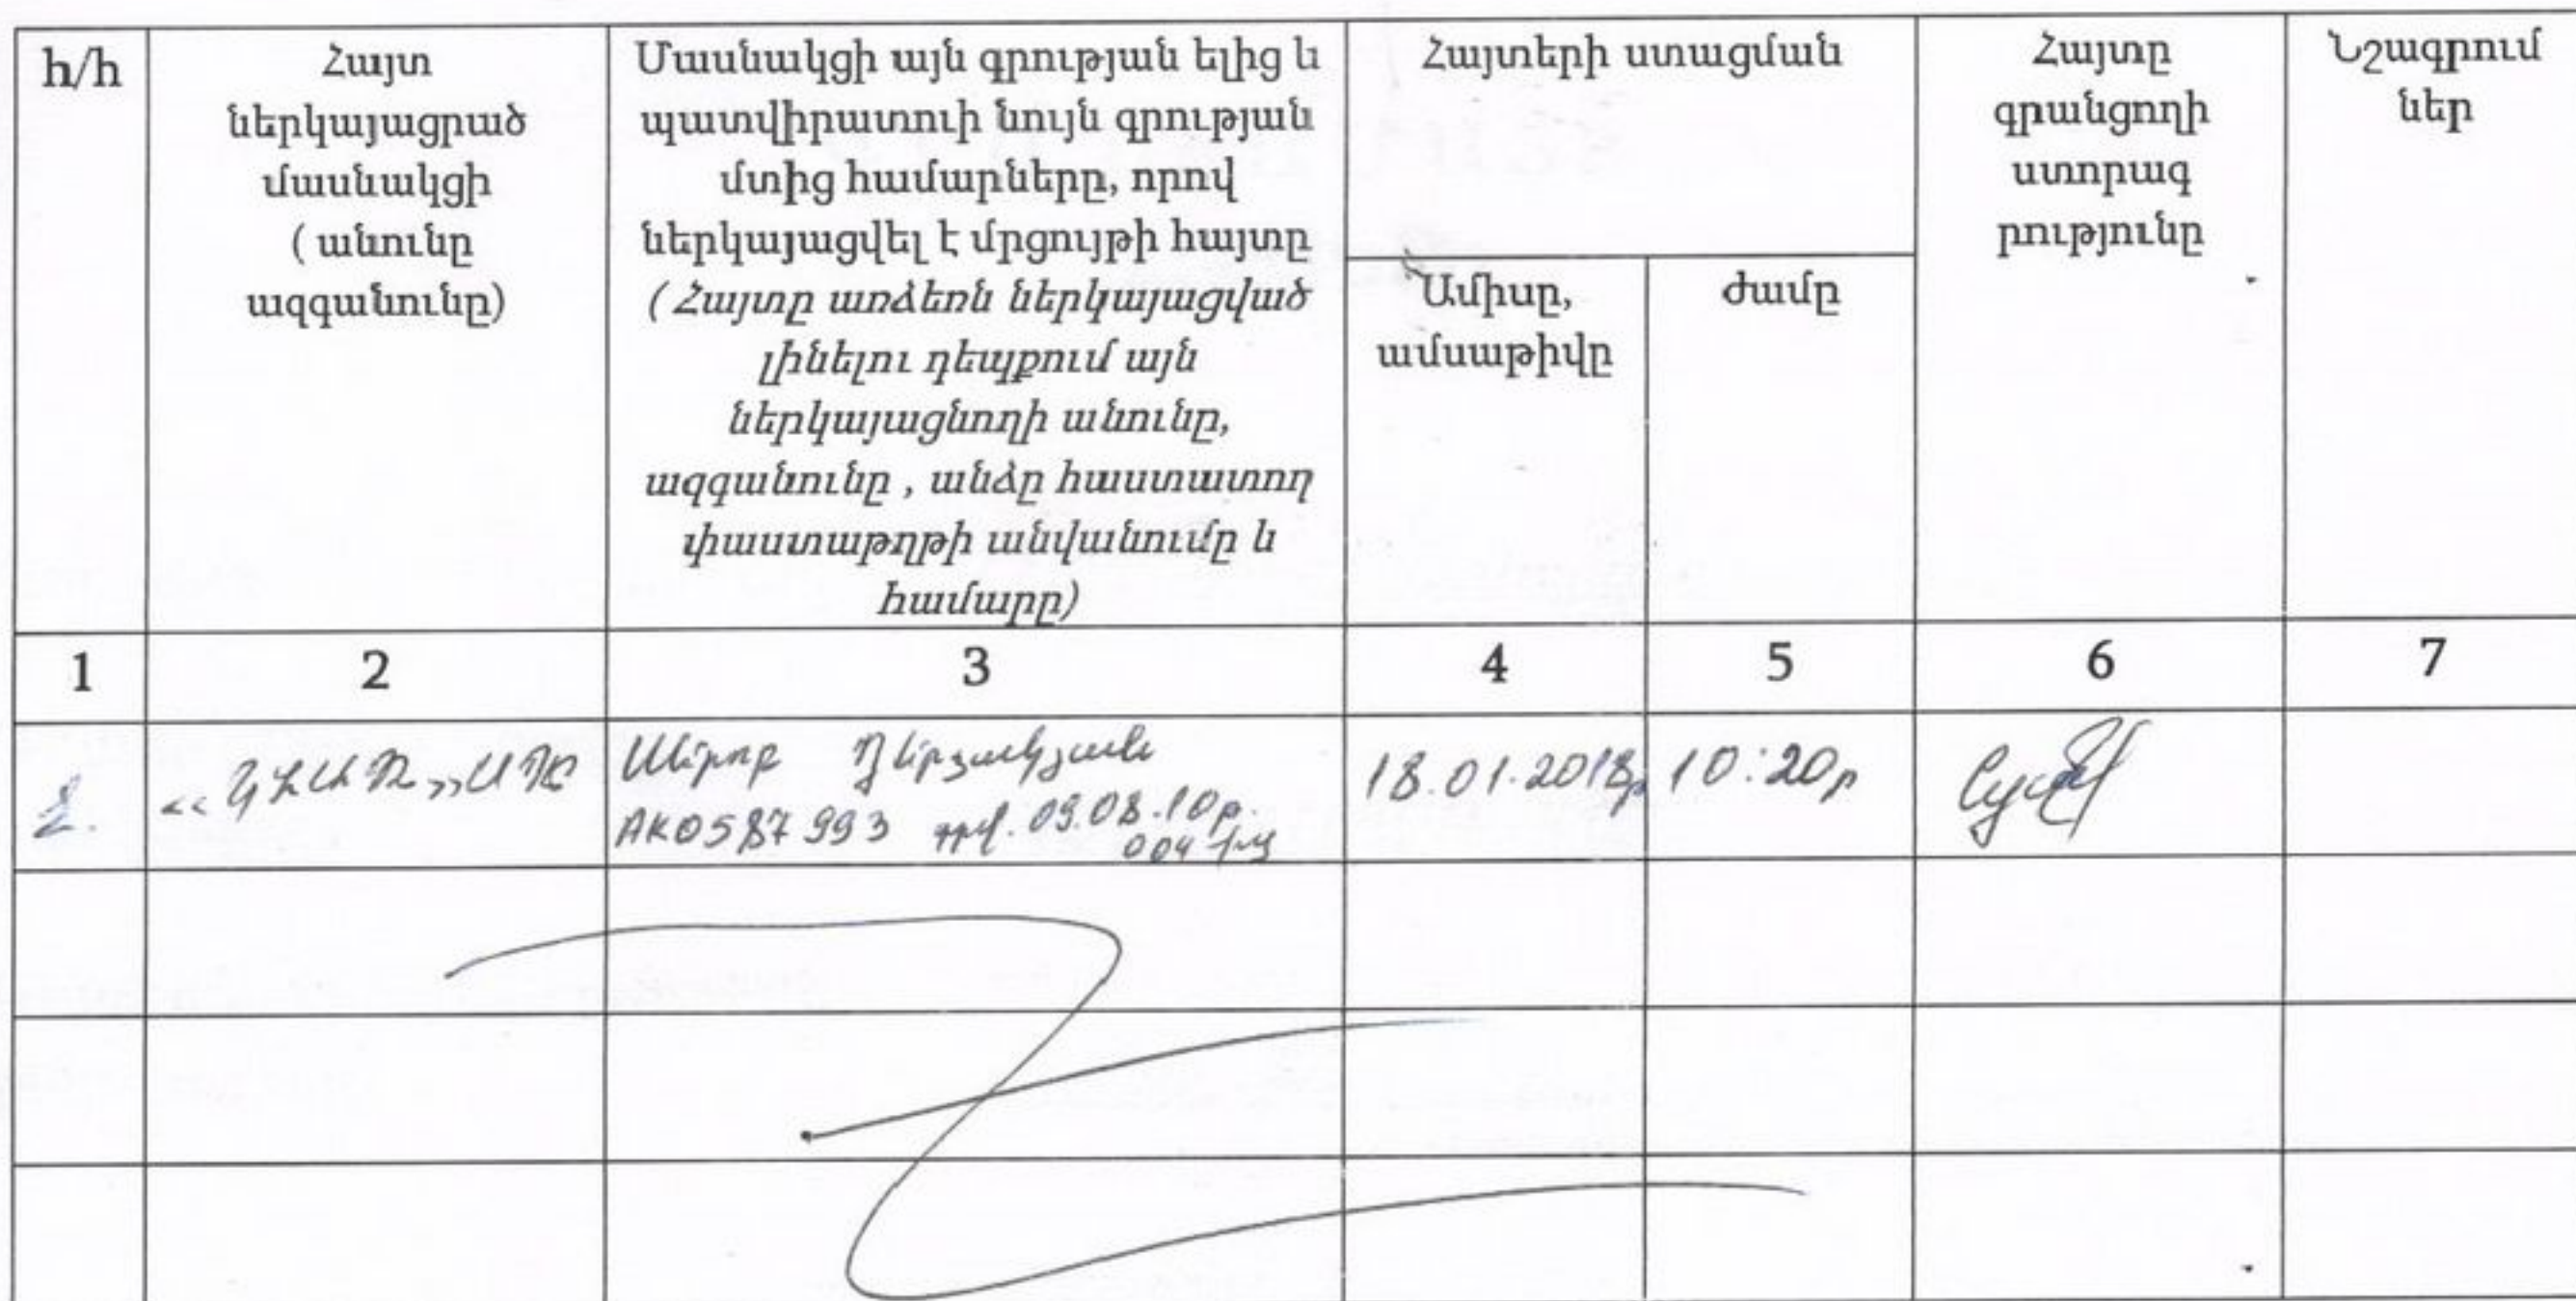 հ/հ
Հայտ
ներկայացրած
մասնակցի
( անունը
ազգանունը)
Մասնակցի այն գրության ելից և
պատվիրատուի նույն գրության
մտից համարները, որով
ներկայացվել է մրցույթի հայտը
( Հայտը առձեռն ներկայացված
լինելու դեպքում այն
ներկայացնողի անունը,
ազգանունը , անձը հաստատող
փաստաթղթի անվանումը և
համարը)
Հայտերի ստացման
Ամիսը,
ամսաթիվը
ժամը
Հայտը
գրանցողի
ստորագ
րությունը
Նշագրում
ներ
1 2 3 4 5 6 7
Սերոբ
AK0587993 տրվ. 09.08.10թ.
004
18.01.2018թ
10:20ր